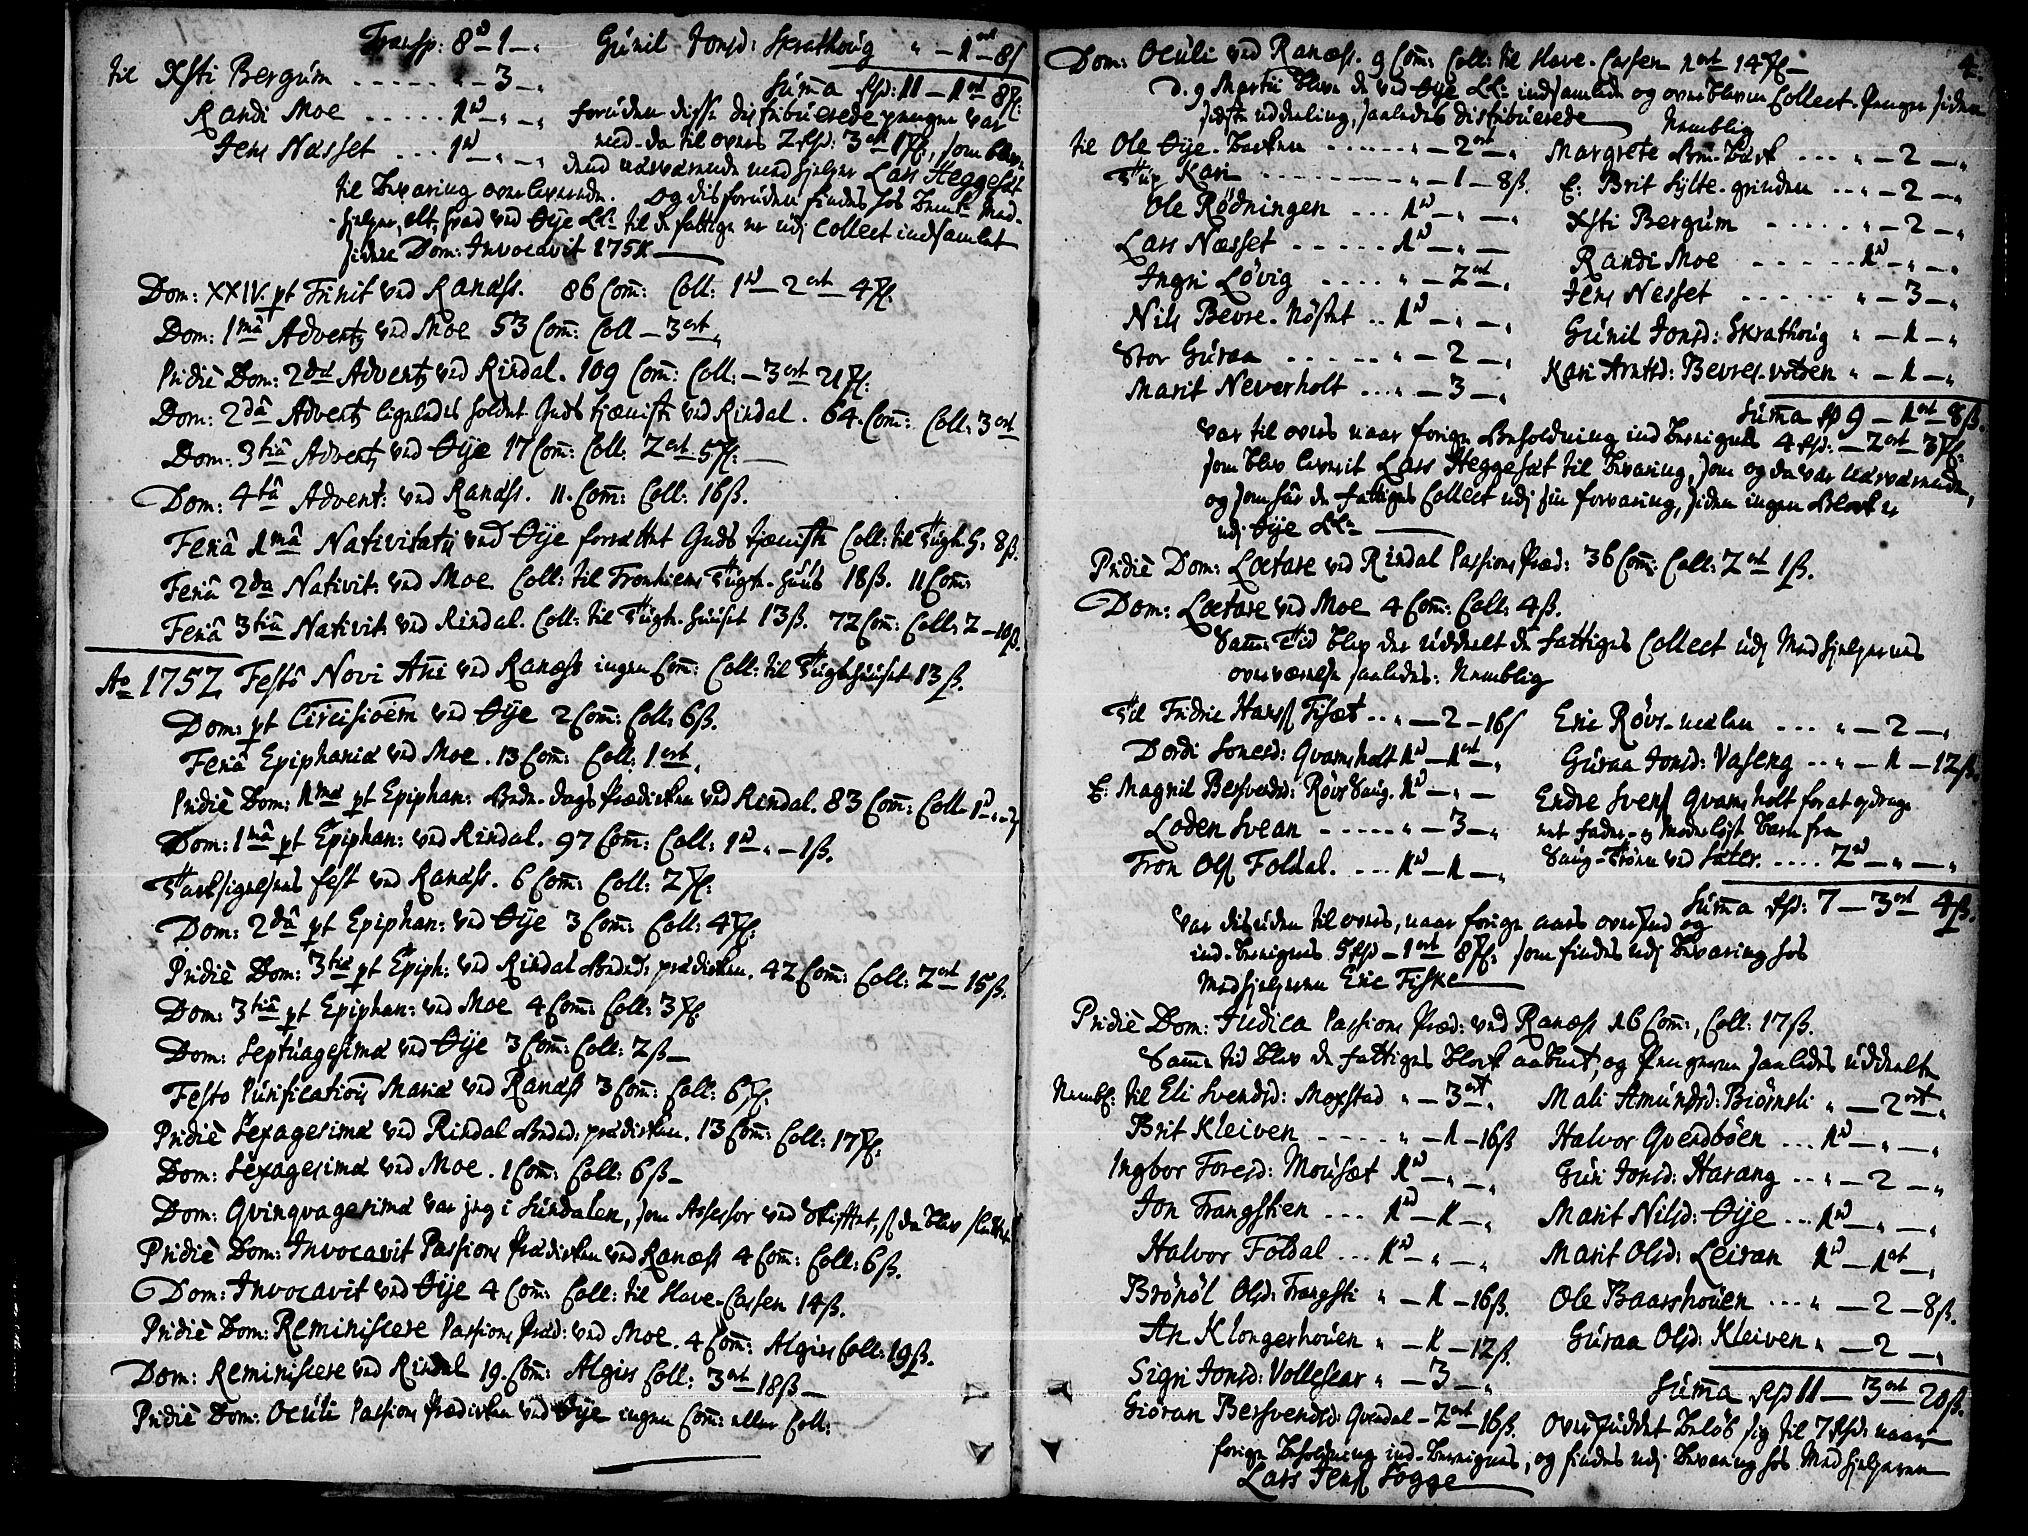 Transp: 8 rd - 1 - "
til Xsti Bergum ...... " - 3 - "
Randi Moe ..... 1 rd - " - "
Jens Næsset ... 1 rd - " - "
Gunil Jonsd: Skrathoug " - 1 ort - 8 s
Suma rd: 11 - 1 ort 8 ß:
foruden disse distribuerede penger var
med-da til overs 2 rd: 3 ort 1 ß, som blev
den nærværende medhjelper Lars Heggeset
til bevaring overleverede. og disforuden findes hos bemte Med-
hjelper, alt, hvad ved Øye Kk: til de fattige er udj Collect indsamlet
siden Dom: Invocavit 1751.
Dom: XXIV. pt Trinit ved Ranæss. 86 Com: Coll: 1 rd - 2 ort - 4 ß.
Dom: 1mâ Advent ved Moe 53 Com: Coll - 3 ort "
Pridiè Dom: 2dâ Advent ved Rindal. 109 Com: Coll: - 3 ort 21 ß:
Dom: 2dâ Advent ligeledes holdet Guds tjeniste ved Rindal. 64. Com: Coll: 3 ort
Dom: 3tiâ Advent ved Øye 17 Com: Coll: 2 ort 5 ß:
Dom: 4tâ Advent: ved Ranæss. 11. Com: Coll: 16 ß.
Feriâ 1mâ Nativitatis ved Øye forrættet Guds tjeniste Coll: til Tugth. H: 8 ß.
Feriâ 2da Nativit: ved Moe Coll: til Tronhiems Tugth-huus 18 ß. 11 Com:
Feriâ 3tiâ Nativit: ved Rindal. Coll: til Tugth-huuset 13 ß. 72 Com: Coll: 2 - 10 ß.
Ao 1752 Festô Novi Ani ved Ranæss ingen Com: Coll: til Tugthuuset 13 ß.
Dom: pt Circisioem ved Øye 2 Com: Coll: 6 ß.
Feriâ Epiphaniæ ved Moe. 13 Com: Coll: 1 ort "
Pridiè Dom: 1mâ pt Epiphan: Bede-dags Prædicken ved Rindal. 83 Com: Coll. 1 rd
Dom: 1mâ pt Epiphan: ved Rindal. 97 Com: Coll: 1 rd " - 1 ß.
Tacksigelsens fest ved Ranæss. 6 Com: Coll: 2 ß:
Dom: 2dâ pt Epiphan: ved Øye 3 Com: Coll: 4 ß.
Pridiè Dom: 3tiâ pt Epiph: ved Rindal Beded: prædicken. 42 Com: Coll: 2 ort 15 ß.
Dom: 3tiâ pt Epiphan: ved Moe 4 Com: Coll: 3 ß
Dom: Septuagesima ved Øye 3 Com: Coll: 2 ß
Festo Purificatiois Mariæ ved Ranæss 3 Com: Coll: 6 ß.
Pridiè Sexagesimæ ved Rindal Beded: prædicken. 13 Com: Coll: 17 ß.
Dom: Sexagesimæ ved Moe. 1 Com: Coll: 6 ß
Dom: Qvinqvagesimæ var jeg i Sundalen, som Assessor ved Skiftet,
Pridiè Dom: Invocavit Passions Prædicken ved Ranæss 4 Com: Coll: 6 ß.
Dom: Invocavit ved Øye 4 Com: Coll: til Slave-Cassen 14 ß.
Pridiè Dom: Reminiscere Passions Præd: ved Moe. 4 Com: Algirs Coll: 19 ß.
Dom: Reminiscere ved Rindal 19. Com: Algirs Coll: 3 ort 18 ß
Pridiè Dom: Oculi Passions Prædicken ved Øye ingen Com: eller Coll:
4.
Dom: Oculi ved Ranæss. 9 Com: Coll: til Slave-Cassen 1 ort 14 ß
D. 9 Martii blev de ved Øye Kk: indsamlede og overblevne Collect-Penger siden
sidste uddeeling, saaledes distribuerede Nemblig
til Ole Øye-backen ...... " - 2 ort "
Tup Kari " - 1 - 8 ß.
Ole Rødningen ... 1 rd - " - "
Lars Næsset ...... 1 rd - " -
Ingri Løvig ..... " - 2 ort "
Nils Bevre-Nøstet .. 1 rd - " - "
Stor Guraa ...... " - 2 - "
Marit Neverholt ... " - 3 - "
Margrete ... " - 2 - "
E: Brit Sylte-grinden .. " - 2 - "
Xsti Bergum ..... " - 2 - "
Randi Moe ...... 1 rd - " - "
Jens Nesset ...... " - 3 - "
Gunil Jonsd: Skrathoug " - 1 - "
Kari Arntsd: Bevres-volden " - 1 - "
Suma rd 9 - 1 ort 8 ß.
Var til overs naar forige Beholdning ind-beregnes 4 rd: - 2 ort - 3 ß:
som blev leverit Lars Heggeset til bevaring, som og da var nærværende,
og som har de fattiges Collect udj sin forvaring, siden ingen Block er
udj Øye Kk:
Pridiè Dom: Loetare ved Rindal Passions Præd: 36 Com: Coll: 2 ort 1 ß.
Dom: Loetare ved Moe 4 Com: Coll: 4 ß.
Same Tid blev der uddeelt de fattiges Collect udj Medhjelpernes
overværelse saaledes: Nemblig
Til Fridric Hanss Fiset .. " - 2 - 16 s
Dordi Sonesd: Qvamsholt 1 rd - 1 ort "
E: Magnil Bersvendsd: Røvs Haug. 1 rd - " -
Loden Svean ...... " - 3 - "
Tron Ols Foldal. .... 1 rd - 1 - "
Eric Røvs-nedlen ... " - 2 - "
Guraa Jonsd: Vaseng .. " - 1 - 12 ß.
Endre Svens Qvamsholt for at opdrage
et fader- og Moderløst barn fra
Haug-Trøen ved Sæter. .... 2 rd - " - "
Suma rd: 7 - 3 ort 4 ß.
var disuden til overs, naar forige aars overskud og
ind-beregnes 5 rd - 1 ort 8 ß. som findes udj bevaring hos
Medhjelperen Eric Fiske
Pridiè Dom: Judica Passions Præd: ved Ranæss 16 Com:, Coll: 17 ß.
Same tid blev de fattiges block aabnet, og Pengerne saaledes uddeelte
Nembl: til Eli Svendsd: Moxstad " - 3 ort "
Brit Kleiven ..... " - 1 - 16 ß
Ingbor Toresd: Mousæt 1 rd - " - "
Jon Trangstien ... 1 rd - 1 - "
Halvor Foldal ... 1 rd - " - "
Brønøl Olsd: Trangsti " - 1 - 16 ß.
An Klongerhouen " - 1 - 12 ß.
Sigri Jonsd: Vollesear " - 3 - "
Giøran Bersvendsd: Qvendal - 2 ort - 16 ß.
Mali Amundsd: Biørnsli " - 2 ort "
Halvor Qvendbøen ... 1 rd - " - "
Guri Jonsd: Harang ... " - 2 - "
Marit Nilsd: Øye ... 1 rd - " - "
Marit Olsd: Leiran 1 rd - 1 ort - "
Ole Baarshouen ... " - 2 - 8 ß.
Guraa Olsd: Kleiven " - 2 - "
Suma rd 11 - 3 ort 20 ß.
Overskuddet beløb sig til 7 rd: naar
forige Beholdning ind-beregnes, og findes udj bevaring hos Medhjelperen
Lars Jens Fogge